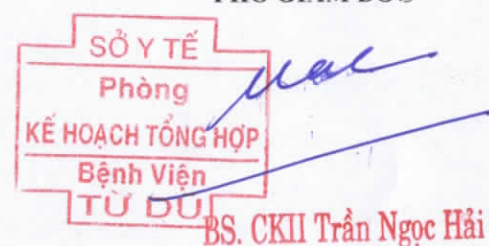 PHÓ GIÁM ĐỐC
SỞ Y TẾ
Phòng
KẾ HOẠCH TỔNG HỢP
Bệnh Viện
TỪ DŨ
BS. CKII Trần Ngọc Hải